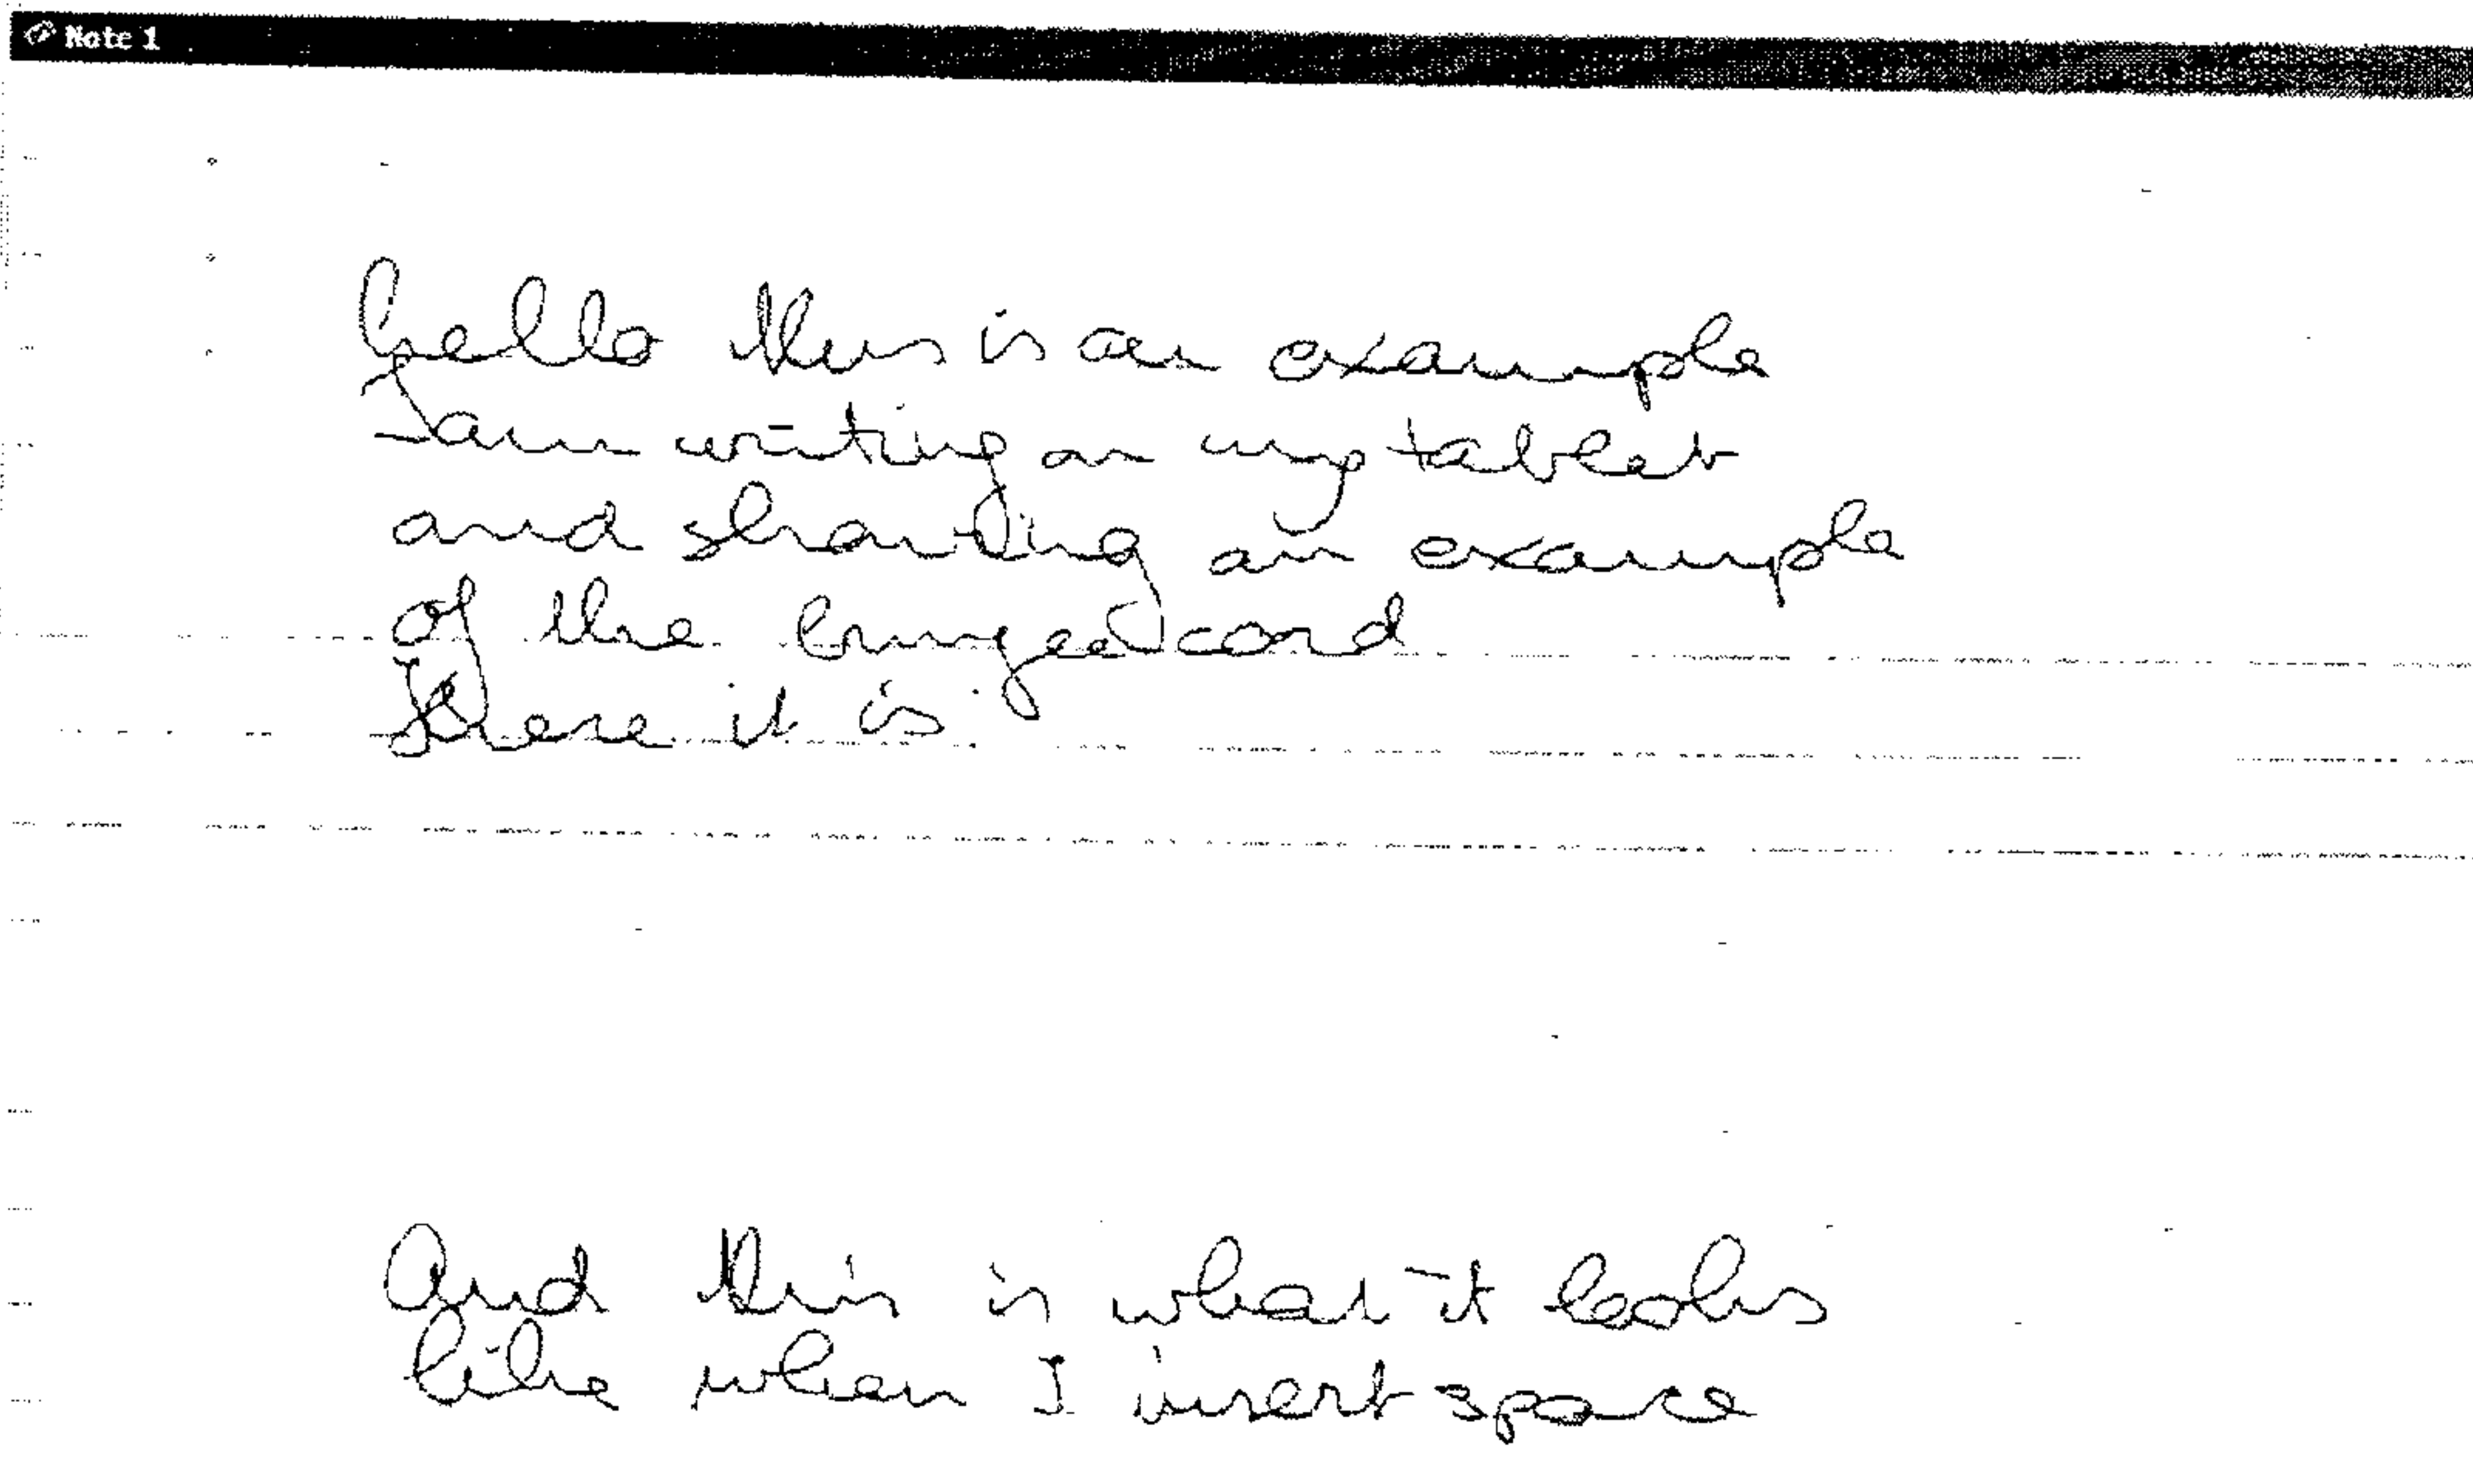 Note 1
hello this is an example
I am writing on my tablet
and sharing an example
of the cord
there it is.
And this is what it looks
like when I insert space